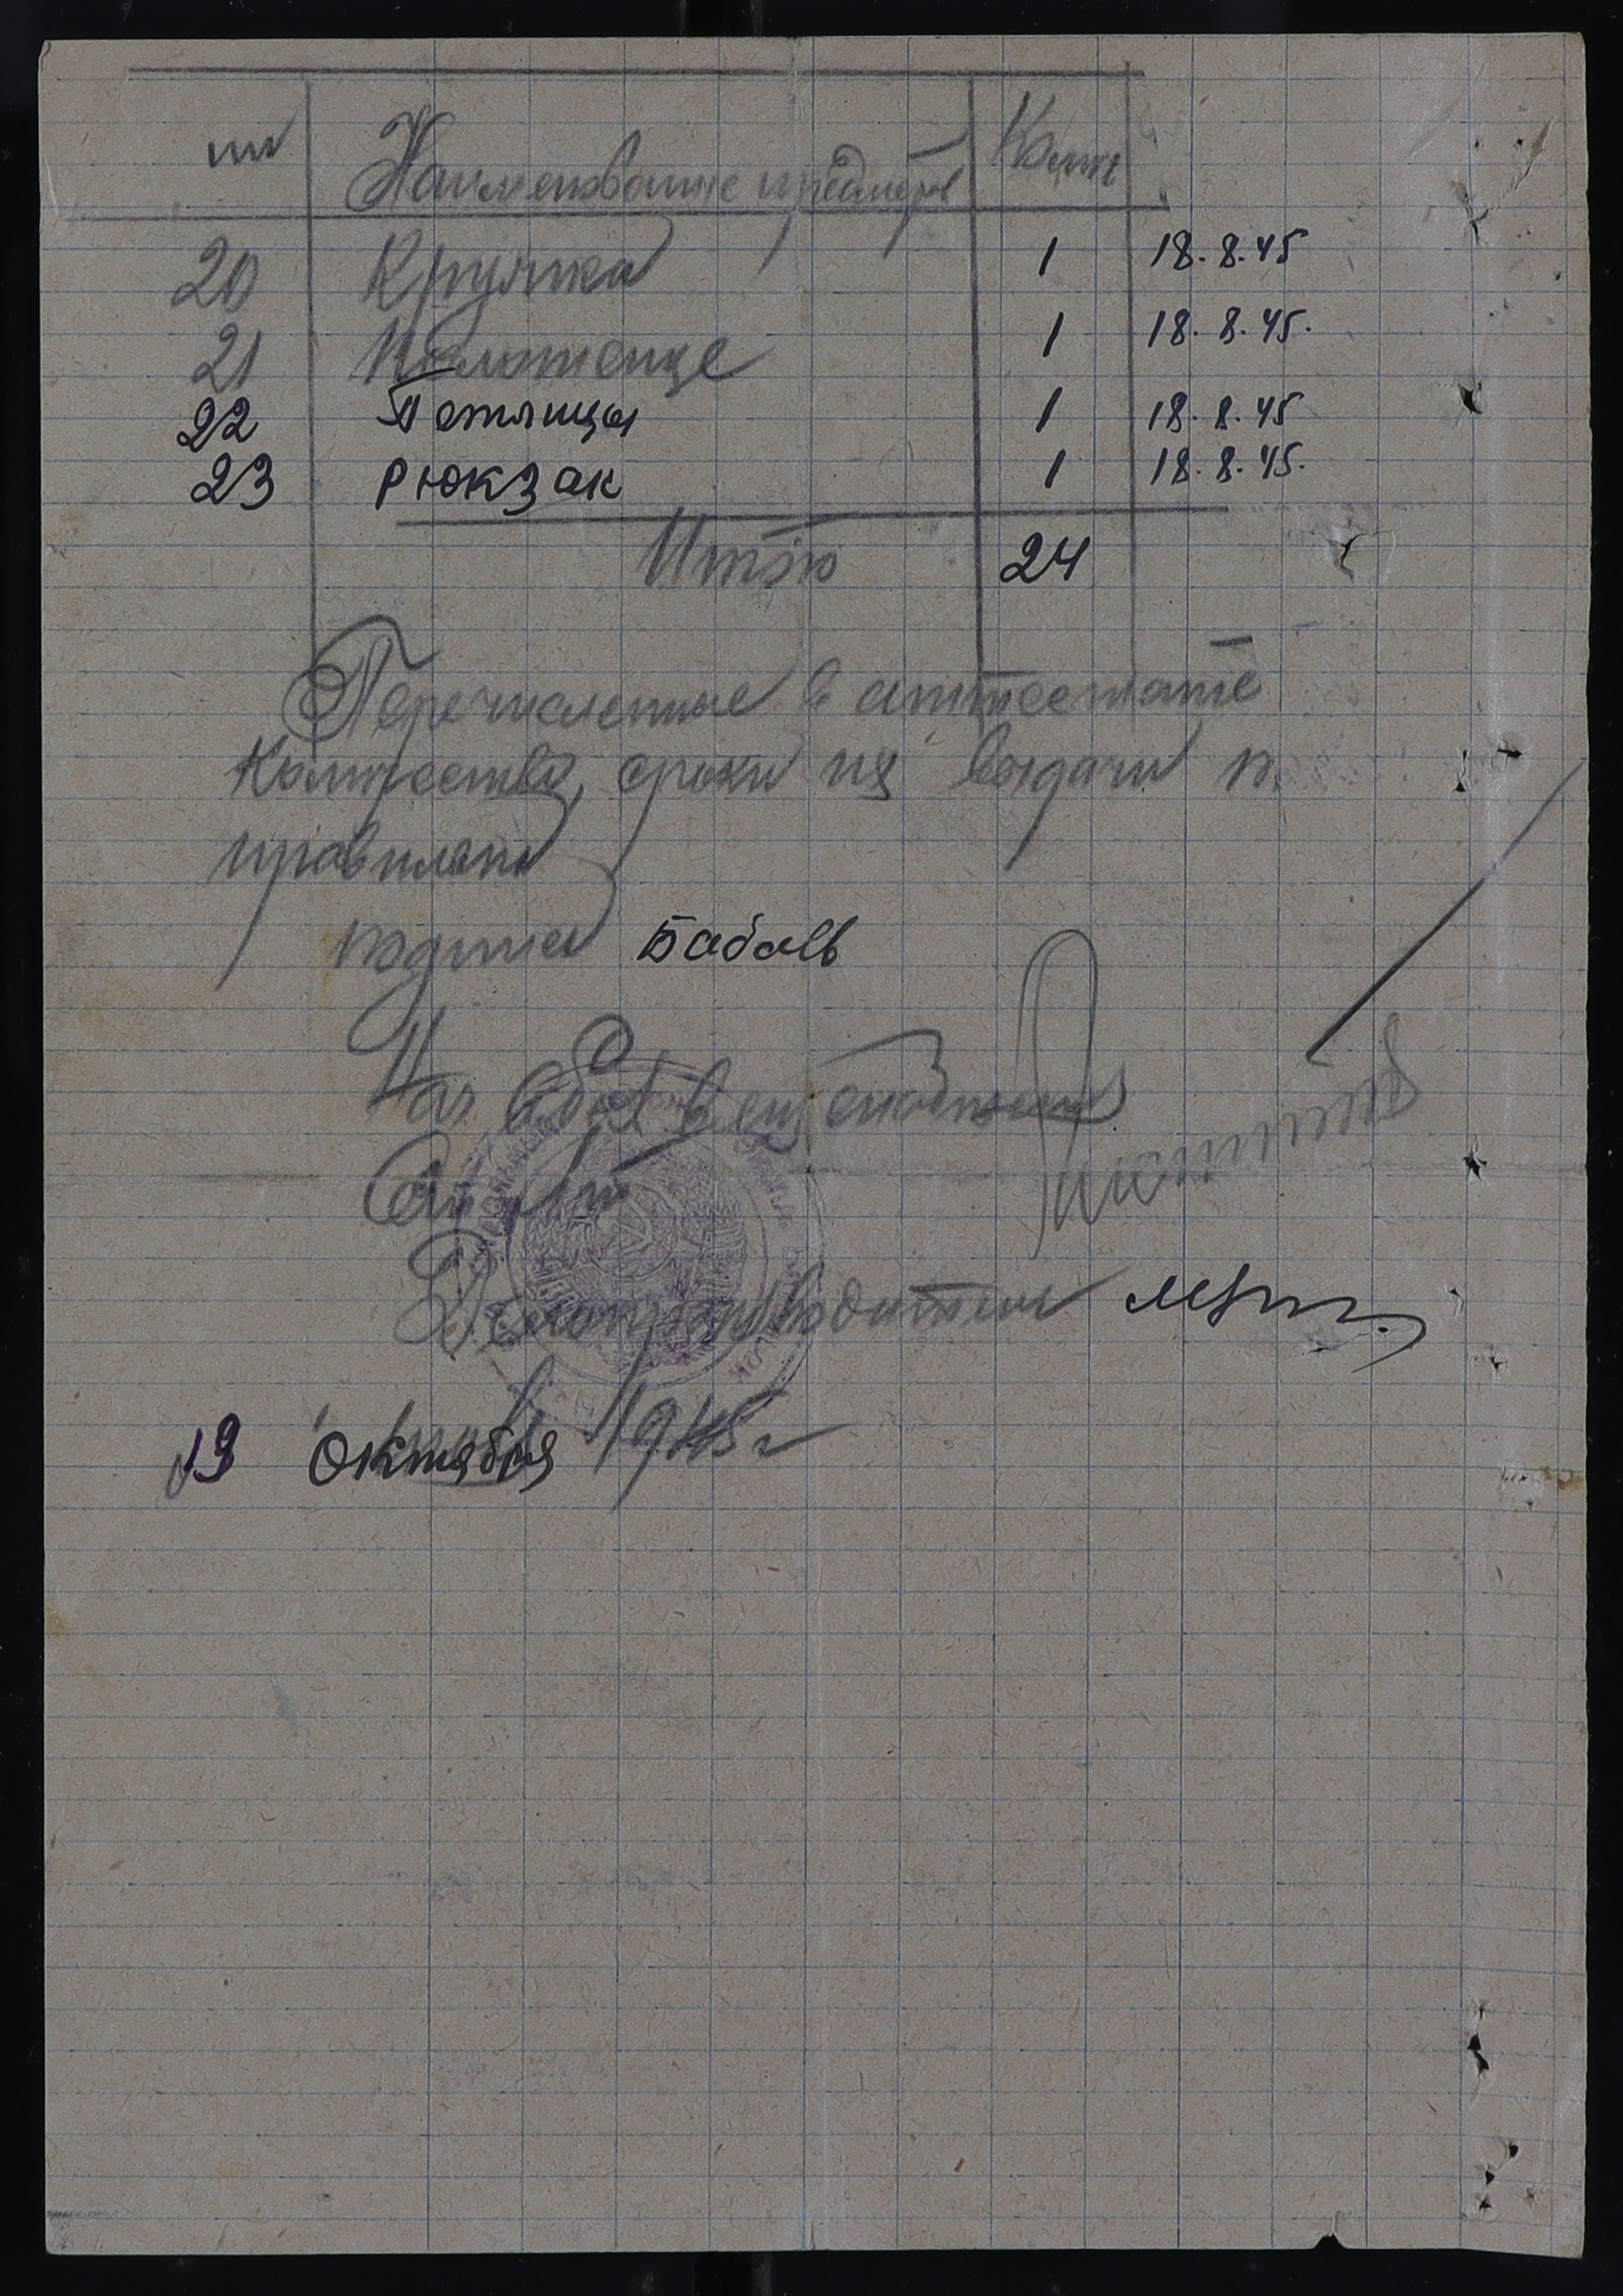 пп Наименование предметов Колич
20 Кружка 1 18.8.45
21 Полотенце 1 18.8.45.
22 Петлицы 1 18.8.45
23 Рюкзак 1 18.8.45.
Итого 24
Перечисленные в аттестате
количество, сроки их выдачи
правильны
подпись Бабаев
Нач вещ снабжения
Ст Л-т
Делопроизводитель
19 октября 1945 г